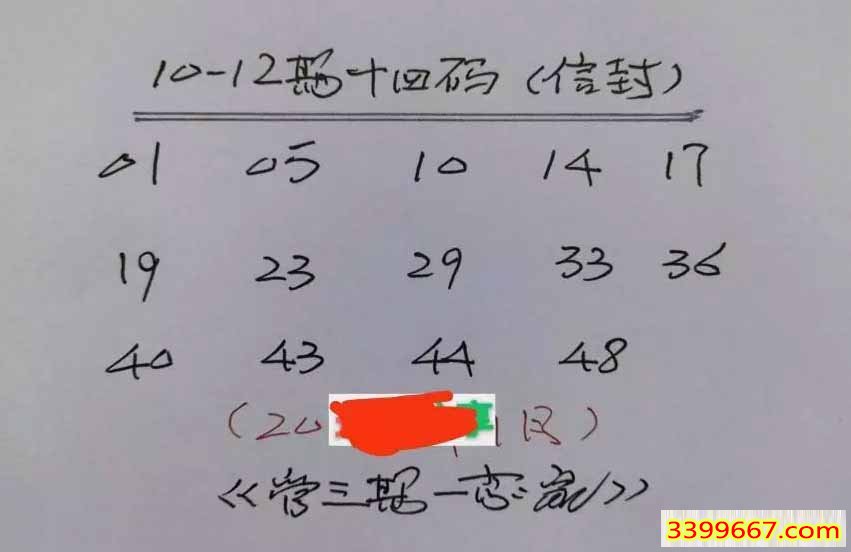 10-12期十四码(信封)
01 05 10 14 17
19 23 29 33 36
40 43 44 48
(20 1日)
《管三期一
3399667.com